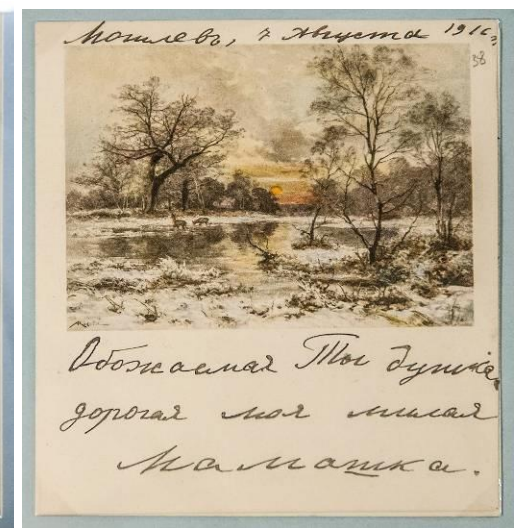 Могилевъ, 7 Августа 1916г.
38
Обожаемая Ты душка,
дорогая моя милая
Мамашка.